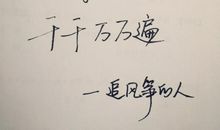 千千万万遍
一追风筝的人